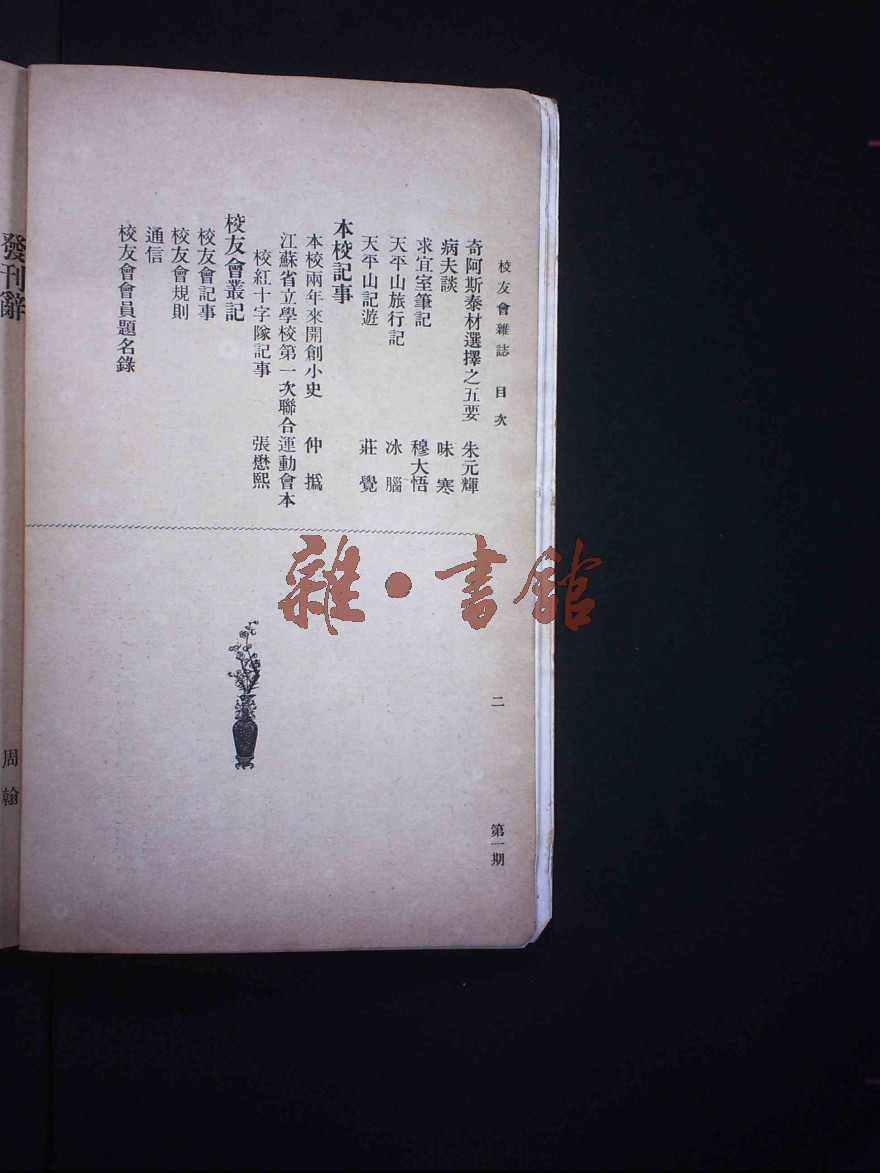 校友會雜誌　目次　二　第一期
奇阿斯泰材選擇之五要　朱元輝
病夫談　味寒
求宜室筆記　穆大悟
天平山旅行記　冰腦
天平山記遊　莊覺
本校記事
本校兩年來開創小史　仲撝
江蘇省立學校第一次聯合運動會本
校紅十字隊記事　張懋熙
校友會叢記
校友會記事
校友會規則
通信
校友會會員題名錄
發刊辭　周翰
雜·書館